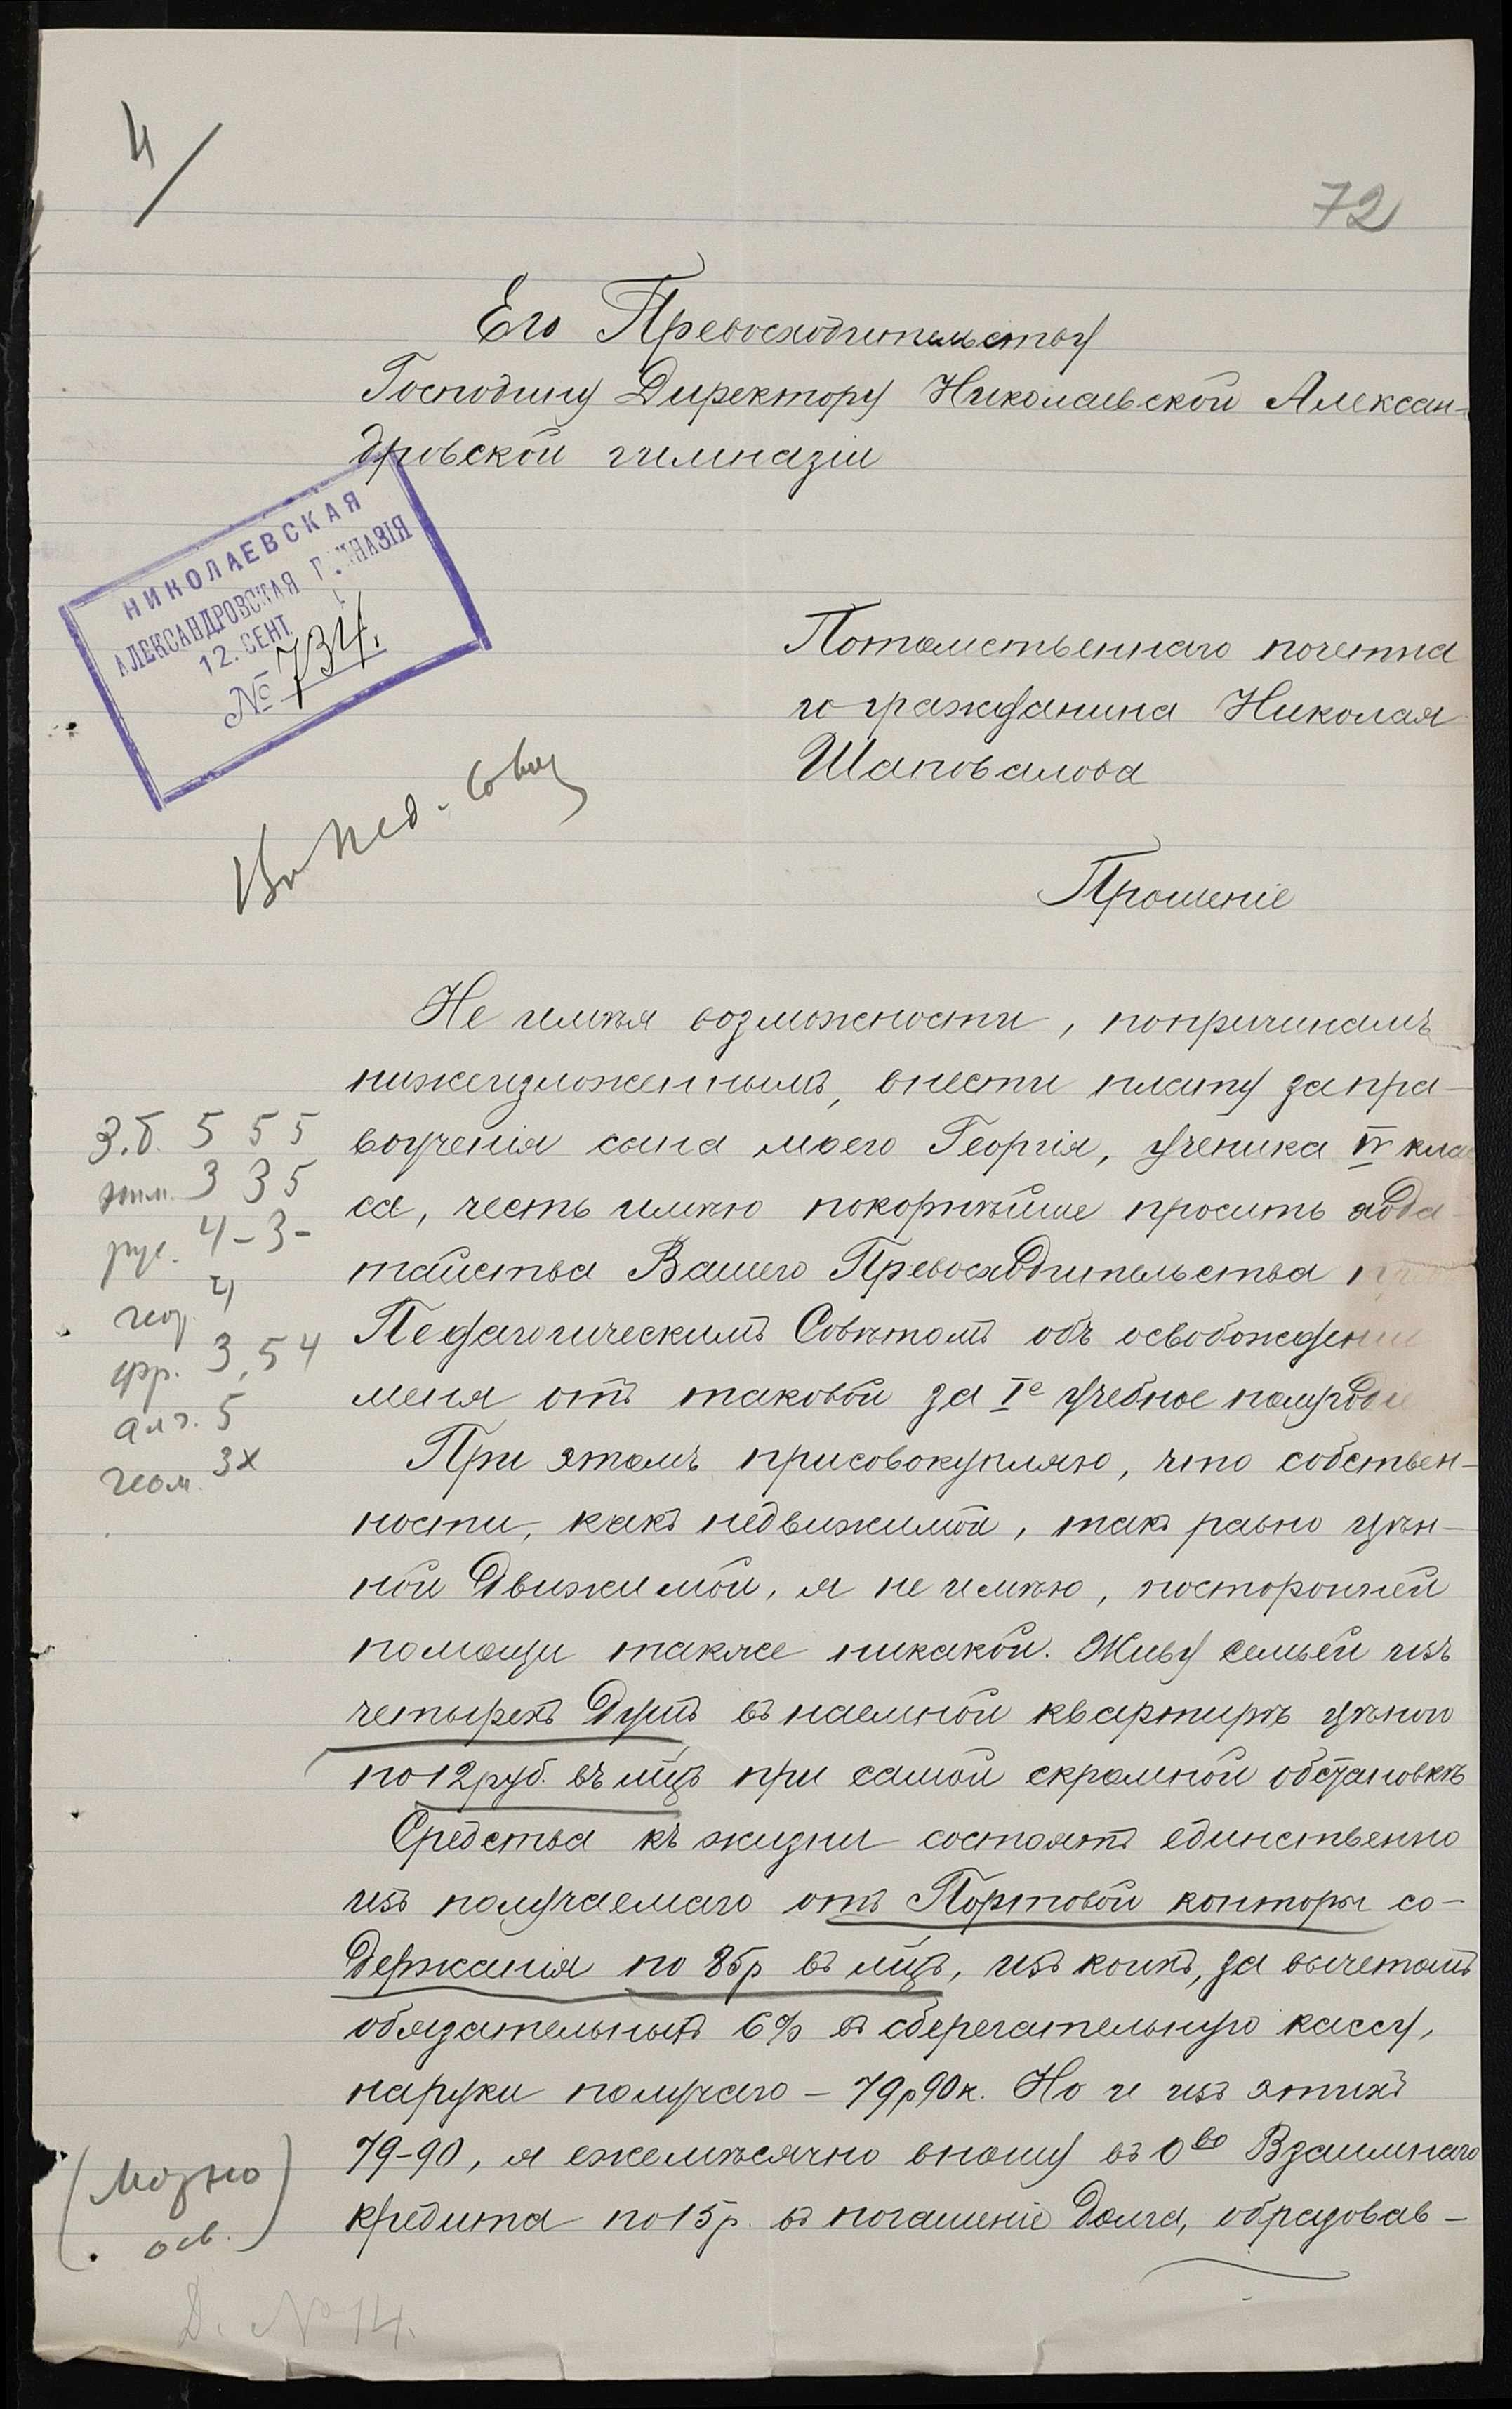 4/
72
Его Превосходительству
Господину Директору Николаевской Алексан-
дровской гимназіи
НИКОЛАЕВСКАЯ
АЛЕКСАНДРОВСКАЯ ГИМНАЗІЯ
12. СЕНТ.
№ 734.
Потомственнаго почетна
го гражданина Николая
Шаповалова
Въ пед. совѣ
Прошеніе
Не имѣя возможности, попричинамъ
нижеизложеннымъ, внести плату запра-
воученія сына моего Георгія, ученика IV кла
са, честь имѣю покорнѣйше просить хода-
тайства Вашего Превосходительства п
Педагогическимъ Совѣтомъ объ освобожденіи
меня отъ таковой за Iе учебное полугодіе
При этомъ присовокупляю, что собствен-
ности, какъ недвижимой, такъ равно цѣн-
ной движимой, я не имѣю, посторонней
помощи также никакой. Живу семьей изъ
четырехъ душъ въ наемной квартирѣ цѣною
по 12 руб. въ мцъ при самой скромной обстановкѣ
Средства къ жизни состоятъ единственно
изъ получаемаго отъ Портовой конторы со-
держанія по 85р въ мцъ, изъ коихъ, за вычетомъ
обязательныхъ 6% въ сберегательную кассу,
наруки получаю – 79р90к. Но и изъ этихъ
79-90, я ежемѣсячно вношу въ О-во Взаимнаго
кредита по 15р. въ погашеніе долга, образовав-
З.б. 5 5 5
3 3 5
рус. 4-3-
геог. 4
фр. 3,54
алг. 5
геом. 3х
(Можно
осв.)
Д. № 14.